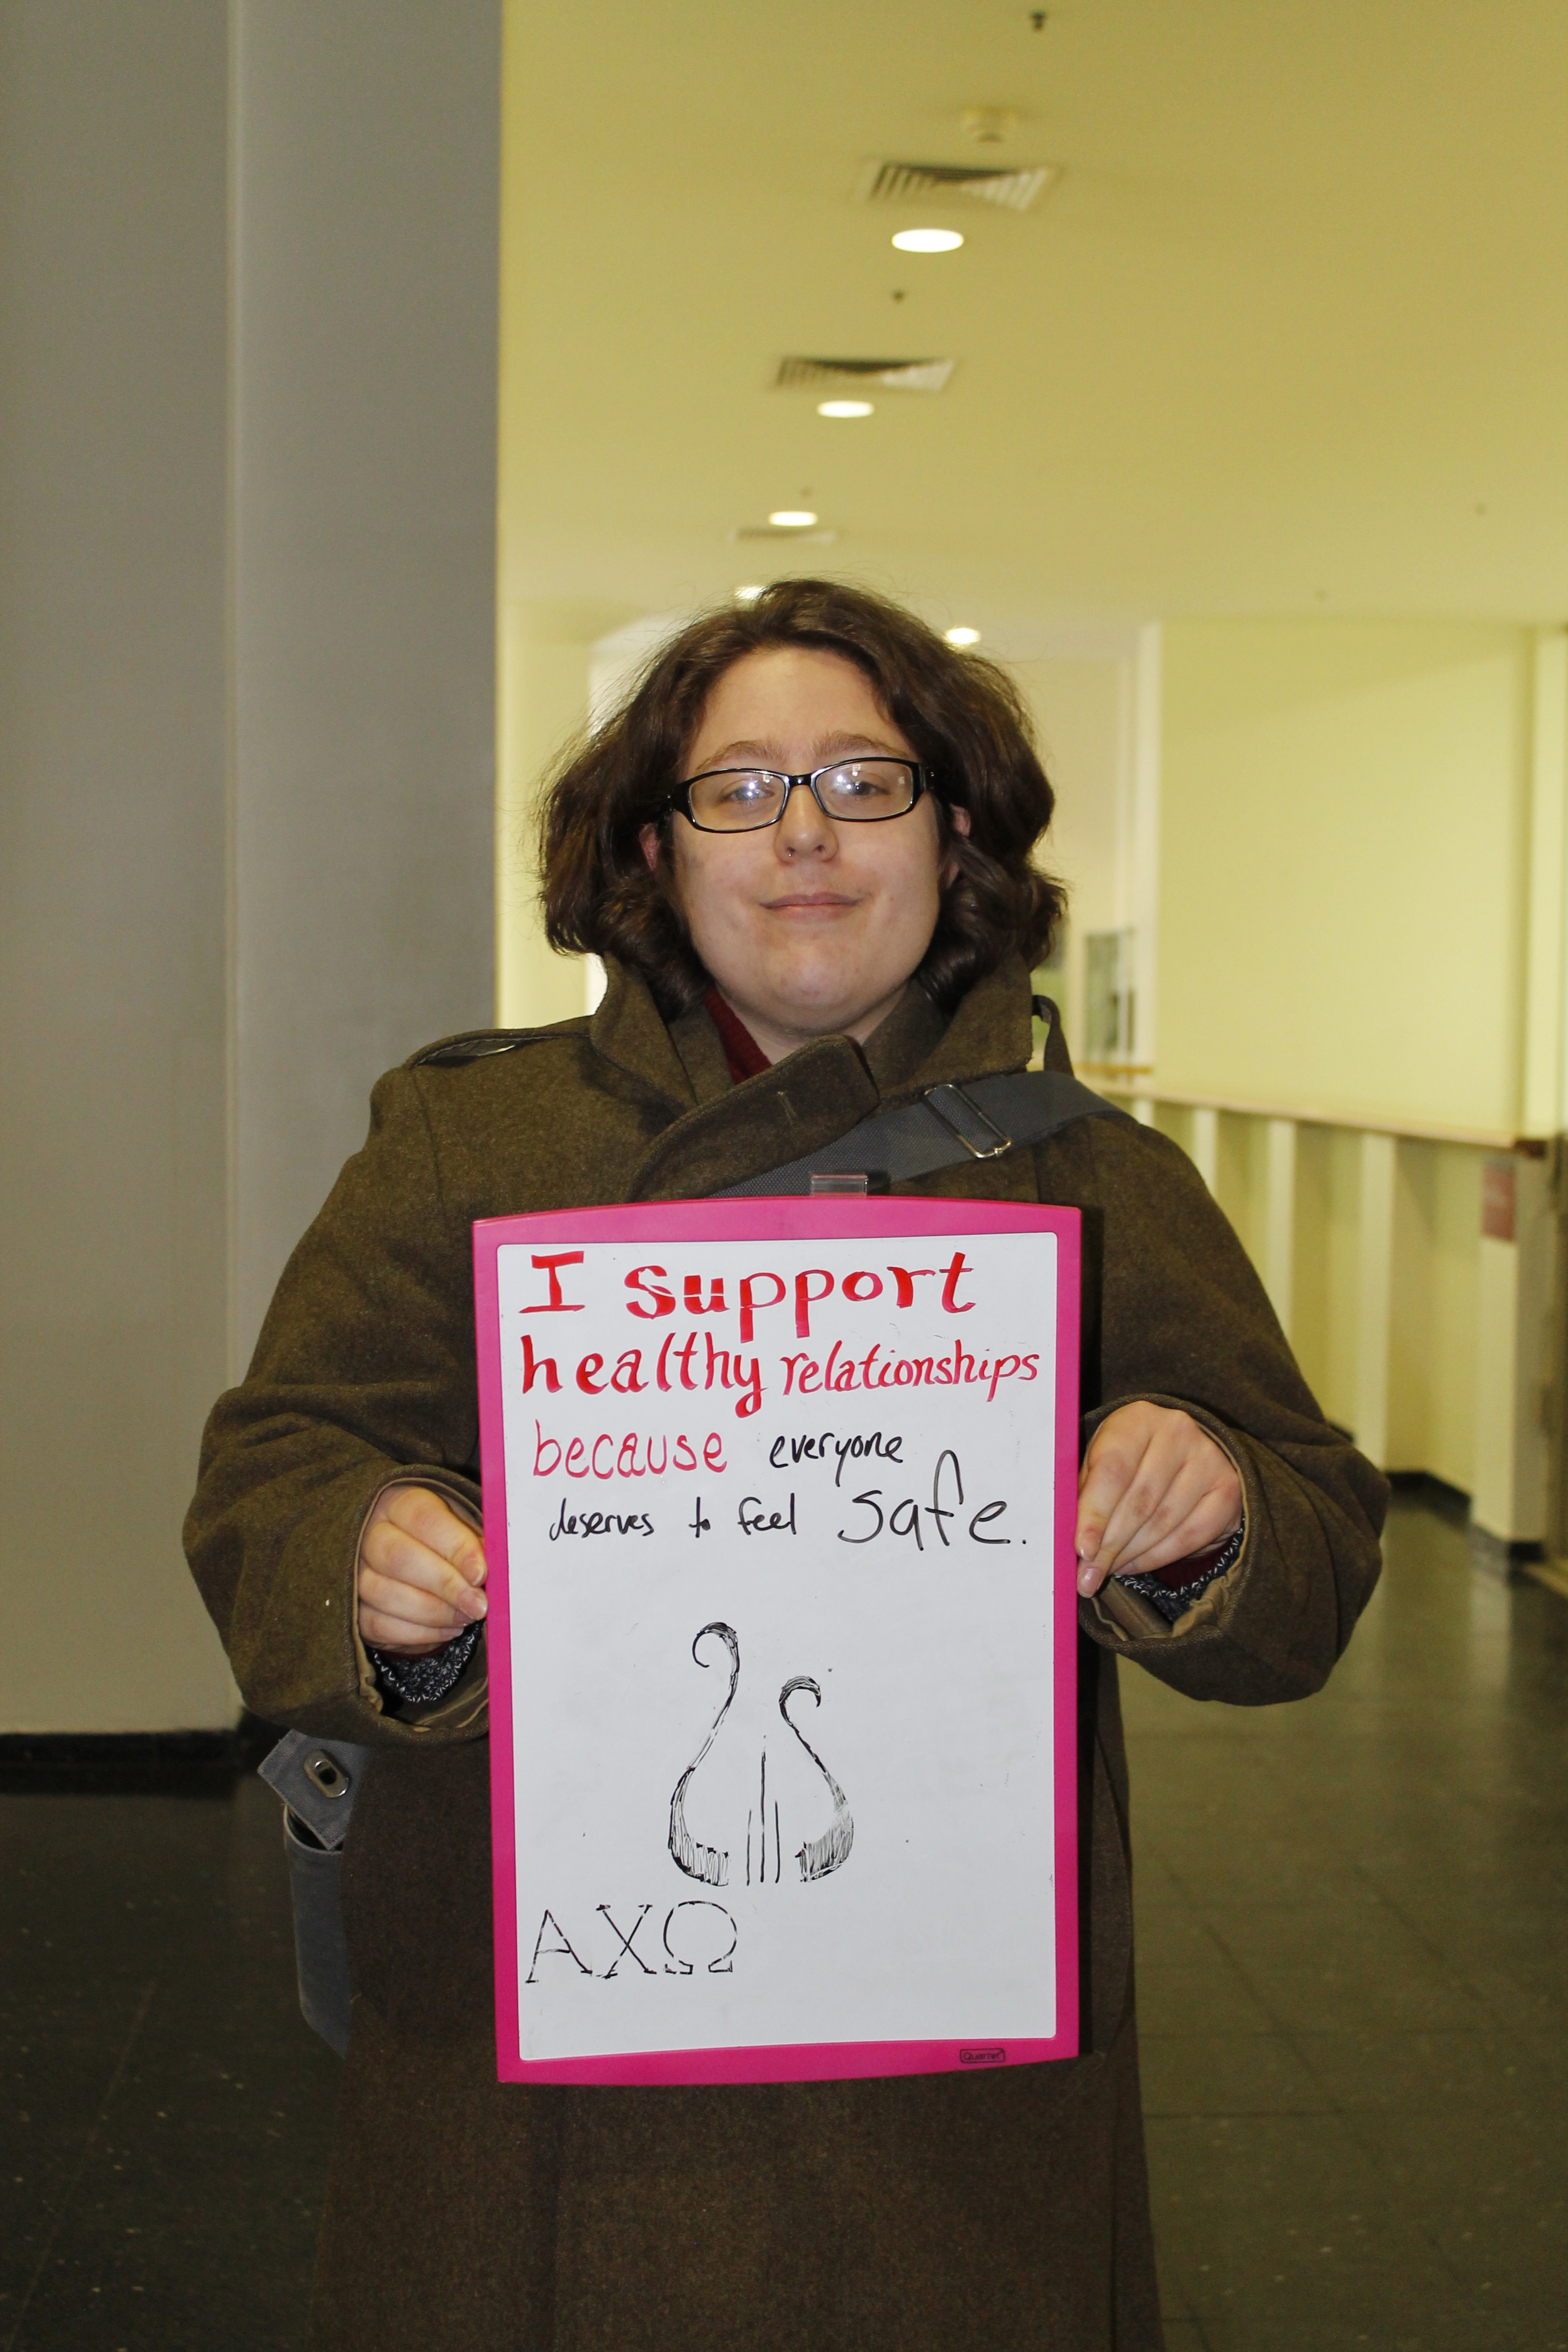 I support
healthy relationships
because everyone
deserves to feel safe.
ΑΧΩ
Quartet